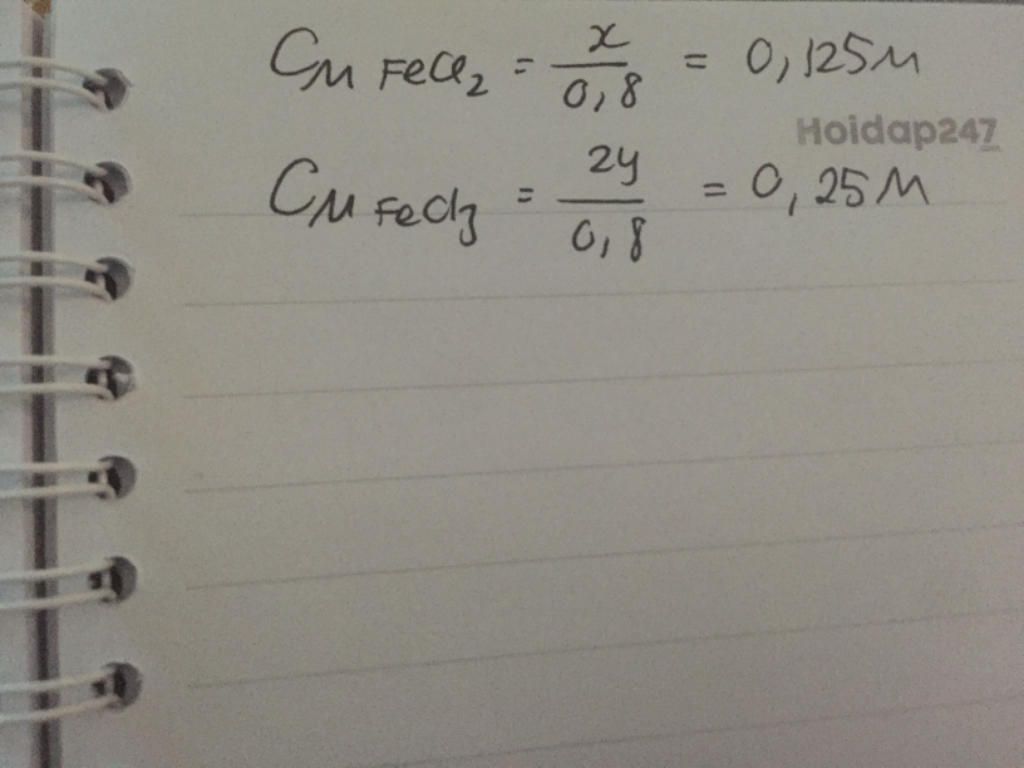 CM FeCl2 = x/0,8 = 0,125M
Hoidap247
CM FeCl3 = 2y/0,8 = 0,25M